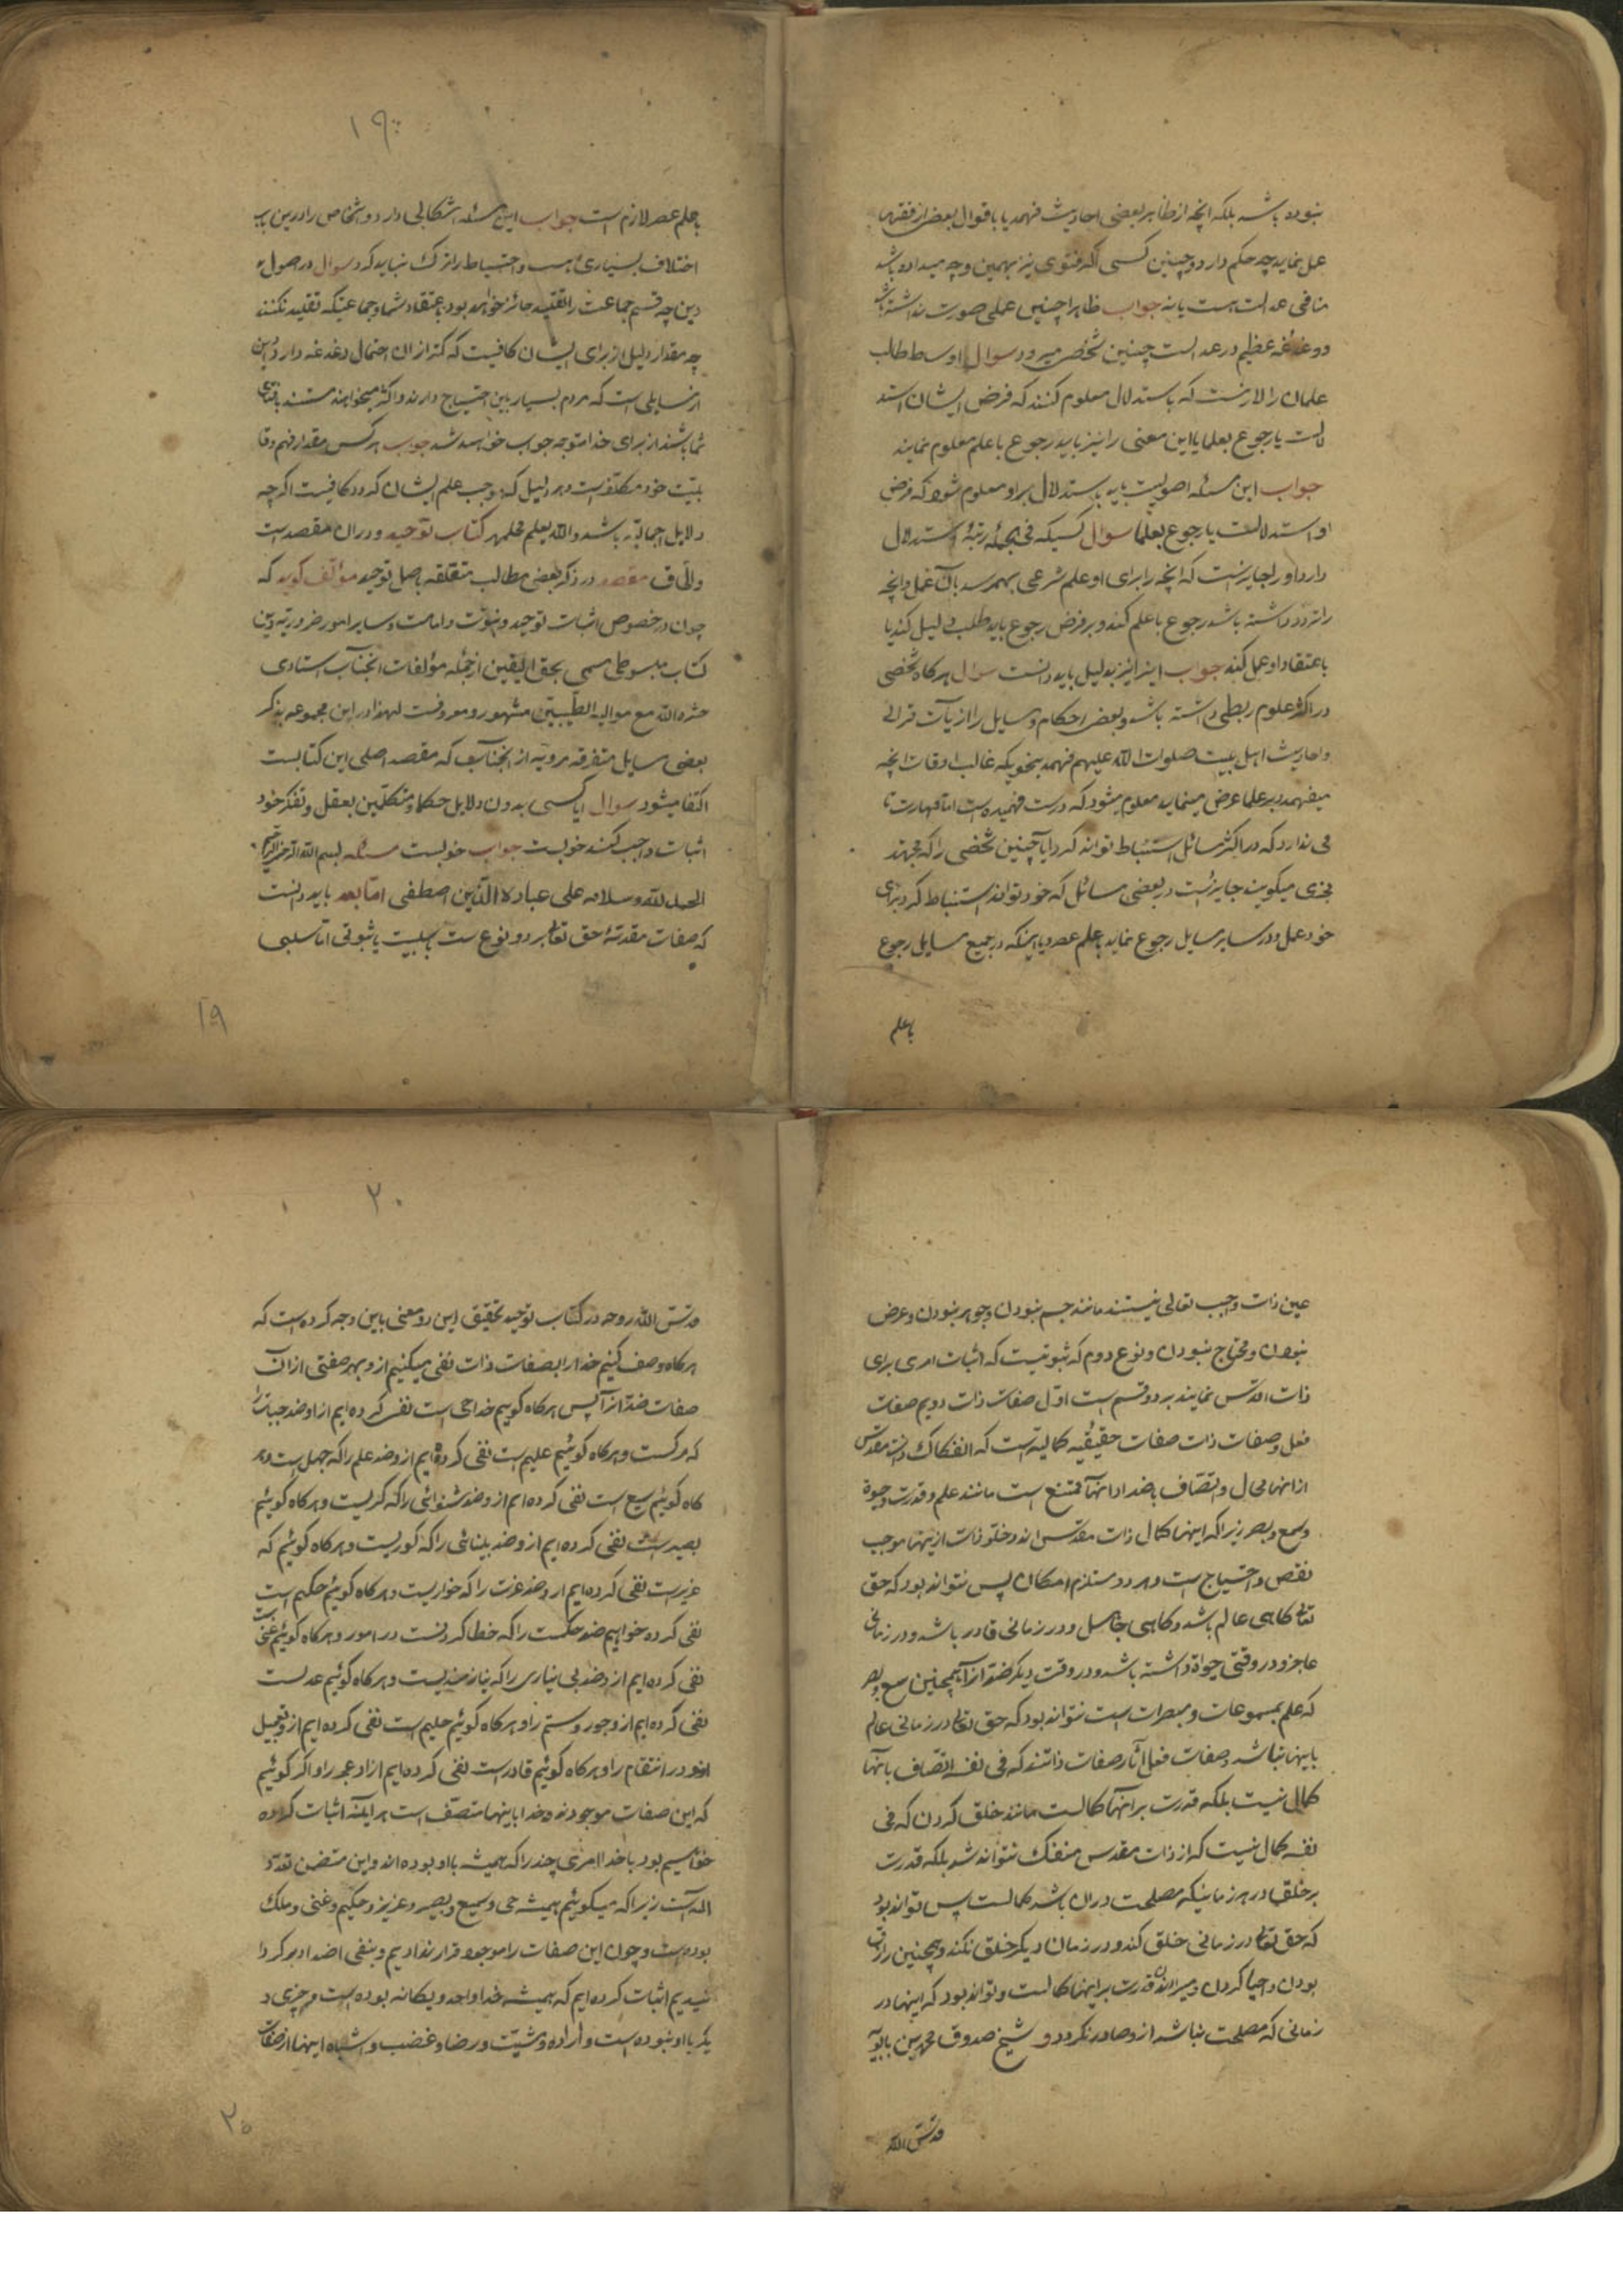 نبوده باشد بلکه آنچه از ظاهر بعضی احادیث فهمد یا باقوال بعض از فقها
عمل نماید چه حکم دارد و چنین کسی اگر فتوی نیز بهمین وجه میداده باشد
منافی عدالت هست یا نه جواب ظاهرا چنین عملی صورت نداشته باشد
و دغدغه عظیم در عدالت چنین شخص میرود سوال اوسط طالب
علمان را لازمست که باستدلال معلوم کنند که فرض ایشان استد
لالست یا رجوع بعلما یا این معنی را نیز باید رجوع باعلم معلوم نمایند
جواب این مسئله اصولیست باید باستدلال بر او معلوم شود که فرض
او استدلالست یا رجوع بعلما سوال کسیکه فی الجمله رتبهٔ استدلال
دارد او را جایزست که آنچه را برای او علم شرعی بهمرسد بآن عمل و آنچه
را تردد داشته باشد رجوع باعلم کند و بر فرض رجوع باید طلب دلیل کند یا
باعتقاد او عمل کند جواب اینرا نیز بدلیل باید دانست سوال هرگاه شخصی
در اکثر علوم ربطی داشته باشد و بعض احکام و مسایل را از آیات قرانی
و احادیث اهل بیت صلوات الله علیهم فهمد بنحویکه غالب اوقات آنچه
میفهمد بر علما عرض مینماید معلوم میشود که درست فهمیده است اما مهارت تا
می ندارد که در اکثر مسائل استنباط تواند کرد آیا چنین شخصی را که مجتهد
متجزی میگویند جایزست در بعضی مسائل که خود تواند استنباط کرد برای
خود عمل و در سایر مسایل رجوع نماید باعلم عصر و یا اینکه در جمیع مسایل رجوع
باعلم
۱۹
باعلم عصر لازم است جواب این مسئله اشکالی دارد و اشخاص را درین باب
اختلاف بسیاری هست و احتیاط را ترک نباید کرد سوال در اصول
دین چه قسم جماعت را تقلید جائز خواهد بود باعتقاد شما و جماعتیکه تقلید نکنند
چه مقدار دلیل از برای ایشان کافیست که کمتر از آن احتمال دغدغه دارد و این
از مسایلی است که مردم بسیار باین احتیاج دارند و اکثر میخواهند مستند بافتای
شما باشند از برای خدا متوجه جواب خواهند شد جواب هر کس بمقدار فهم و قا
بلیت خود مکلفست و هر دلیل که موجب علم ایشان گردد کافیست اگرچه
دلایل اجمالیه باشد و الله یعلم کتاب توحید و در آن مقصد است
مقصد در ذکر بعضی مطالب متعلقه باصل توحید مؤلف گوید که
چون در خصوص اثبات توحید و نبوت و امامت و سایر امور ضروریه دین
کتاب مبسوطی مسمی بحق الیقین از جمله مؤلفات آنجناب استادی
حشره الله مع موالیه الطیبین مشهور و معروفست لهذا در این مجموعه بذکر
بعضی مسایل متفرقه مرویه از آنجناب که مقصد اصلی این کتابست
اکتفا میشود سوال آیا کسی بدون دلایل حکما و متکلمین بعقل و تفکر خود
اثبات واجب کند خوبست جواب خوبست مسئله بسم الله الرحمن الرحیم
الحمد لله وسلامه علی عباده الذین اصطفی اما بعد باید دانست
که صفات مقدسه حق تعالی بر دو نوع ست سلبیست یا ثبوتی اما سلبی
۱۹
عین ذات واجب تعالی نیستند مانند جسم نبودن و جوهر نبودن و عرض
نبودن و محتاج نبودن و نوع دوم که ثبوتیست که اثبات امری برای
ذات اقدس نمایند بر دو قسم است اول صفات ذات دویم صفات
فعل و صفات ذات صفات حقیقیه کمالیه است که انفکاک ذات مقدس
از آنها محال و اتصاف باضداد آنها ممتنع است مانند علم و قدرت و حیوة
و سمع و بصر زیرا که اینها کمال ذات مقدس اند و خلو ذات از اینها موجب
نقص و احتیاج است و هر دو مستلزم امکان پس نتواند بود که حق
تعالی گاهی عالم باشد و گاهی جاهل و در زمانی قادر باشد و در زمانی
عاجز و در وقتی حیوة داشته باشد و در وقت دیگر ضد آنرا همچنین سمع و بصر
که علم بمسموعات و مبصرات است نتواند بود که حق تعالی در زمانی عالم
باینها نباشد و صفات فعل آثار صفات ذاتند که فی نفسه اتصاف بآنها
کمال نیست بلکه قدرت بر آنها کمالست مانند خلق کردن که فی
نفسه کمال نیست که از ذات مقدس منفک نتواند شد بلکه قدرت
بر خلق در هر زمانیکه مصلحت در آن باشد کمالست پس تواند بود
که حق تعالی در زمانی خلق کند و در زمان دیگر خلق نکند و همچنین رازق
بودن و احیا کردن و میراندن قدرت بر اینها کمالست و تواند بود که اینها در
زمانی که مصلحت نباشد از و صادر نگردد و شیخ صدوق محمد بن بابویه
قدس الله
۲۰
قدس الله روحه در کتاب توحید تحقیق این دو معنی باین وجه کرده است که
هرگاه وصف کنیم خدا را بصفات ذات نفی میکنیم از و بهر صفتی از آن
صفات ضد آنرا پس هرگاه گوییم خدا حی است نفی کرده ایم از او ضد حیات را
که مرگست و هرگاه گوئیم علیم است نفی کرده ایم از و ضد علم را که جهل است و هر
گاه گوئیم سمیع است نفی کرده ایم از و ضد شنوائی را که کریست و هرگاه گوئیم
بصیر است نفی کرده ایم از و ضد بینائی را که کوریست و هرگاه گوئیم که
عزیزست نفی کرده ایم از و ضد عزت را که خواریست و هرگاه گوئیم حکیم است
نفی کرده خواهیم ضد حکمت را که خطا کردنست در امور و هرگاه گوئیم غنی است
نفی کرده ایم از و ضد بی نیازی را که نیازمندیست و هرگاه گوئیم عدلست
نفی کرده ایم از و جور و ستم را و هرگاه گوئیم حلیم است نفی کرده ایم از و تعجیل
در انتقام را و هرگاه گوئیم قادر است نفی کرده ایم از او عجز را و اگر گوئیم
که این صفات موجودند و خدا باینها متصف است هر آینه اثبات کرده
خواهیم بود با خدا امری چند را که همیشه با او بوده اند و این متضمن تعدد
اله است زیرا که میگوئیم همیشه حی و سمیع و بصیر و عزیز و حکیم و غنی و ملک
بوده است و چون این صفات را موجود قرار ندادیم و بنفی اضداد بر گردا
نیدیم اثبات کرده ایم که همیشه خدا واحد و یگانه بوده است و چیزی د
یگر با او نبوده است و اراده و مشیت و رضا و غضب و اشباه اینها از صفات
۲۰